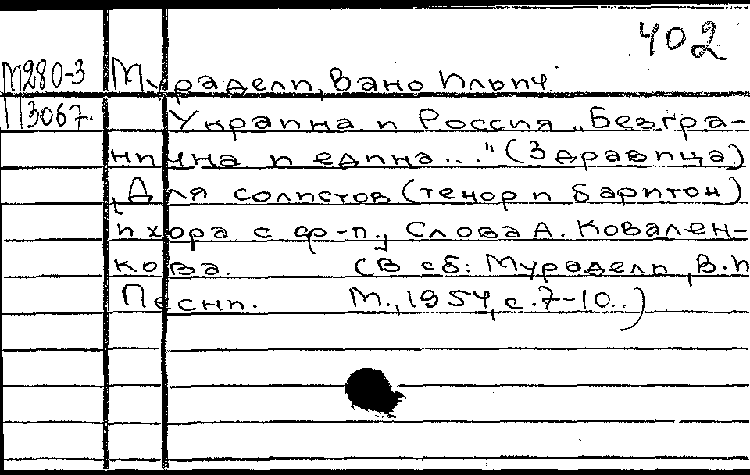 402
М280-3 Мурадели, Вано Ильич
П3067. Украина и Россия „Безгра-
нична и едина..." (Здравица)
Для солистов (тенор и баритон)
и хора с ф-п., Слова А. Ковален-
кова. (В сб: Мурадели, В.И
Песни. М., 1954, с.7-10..)